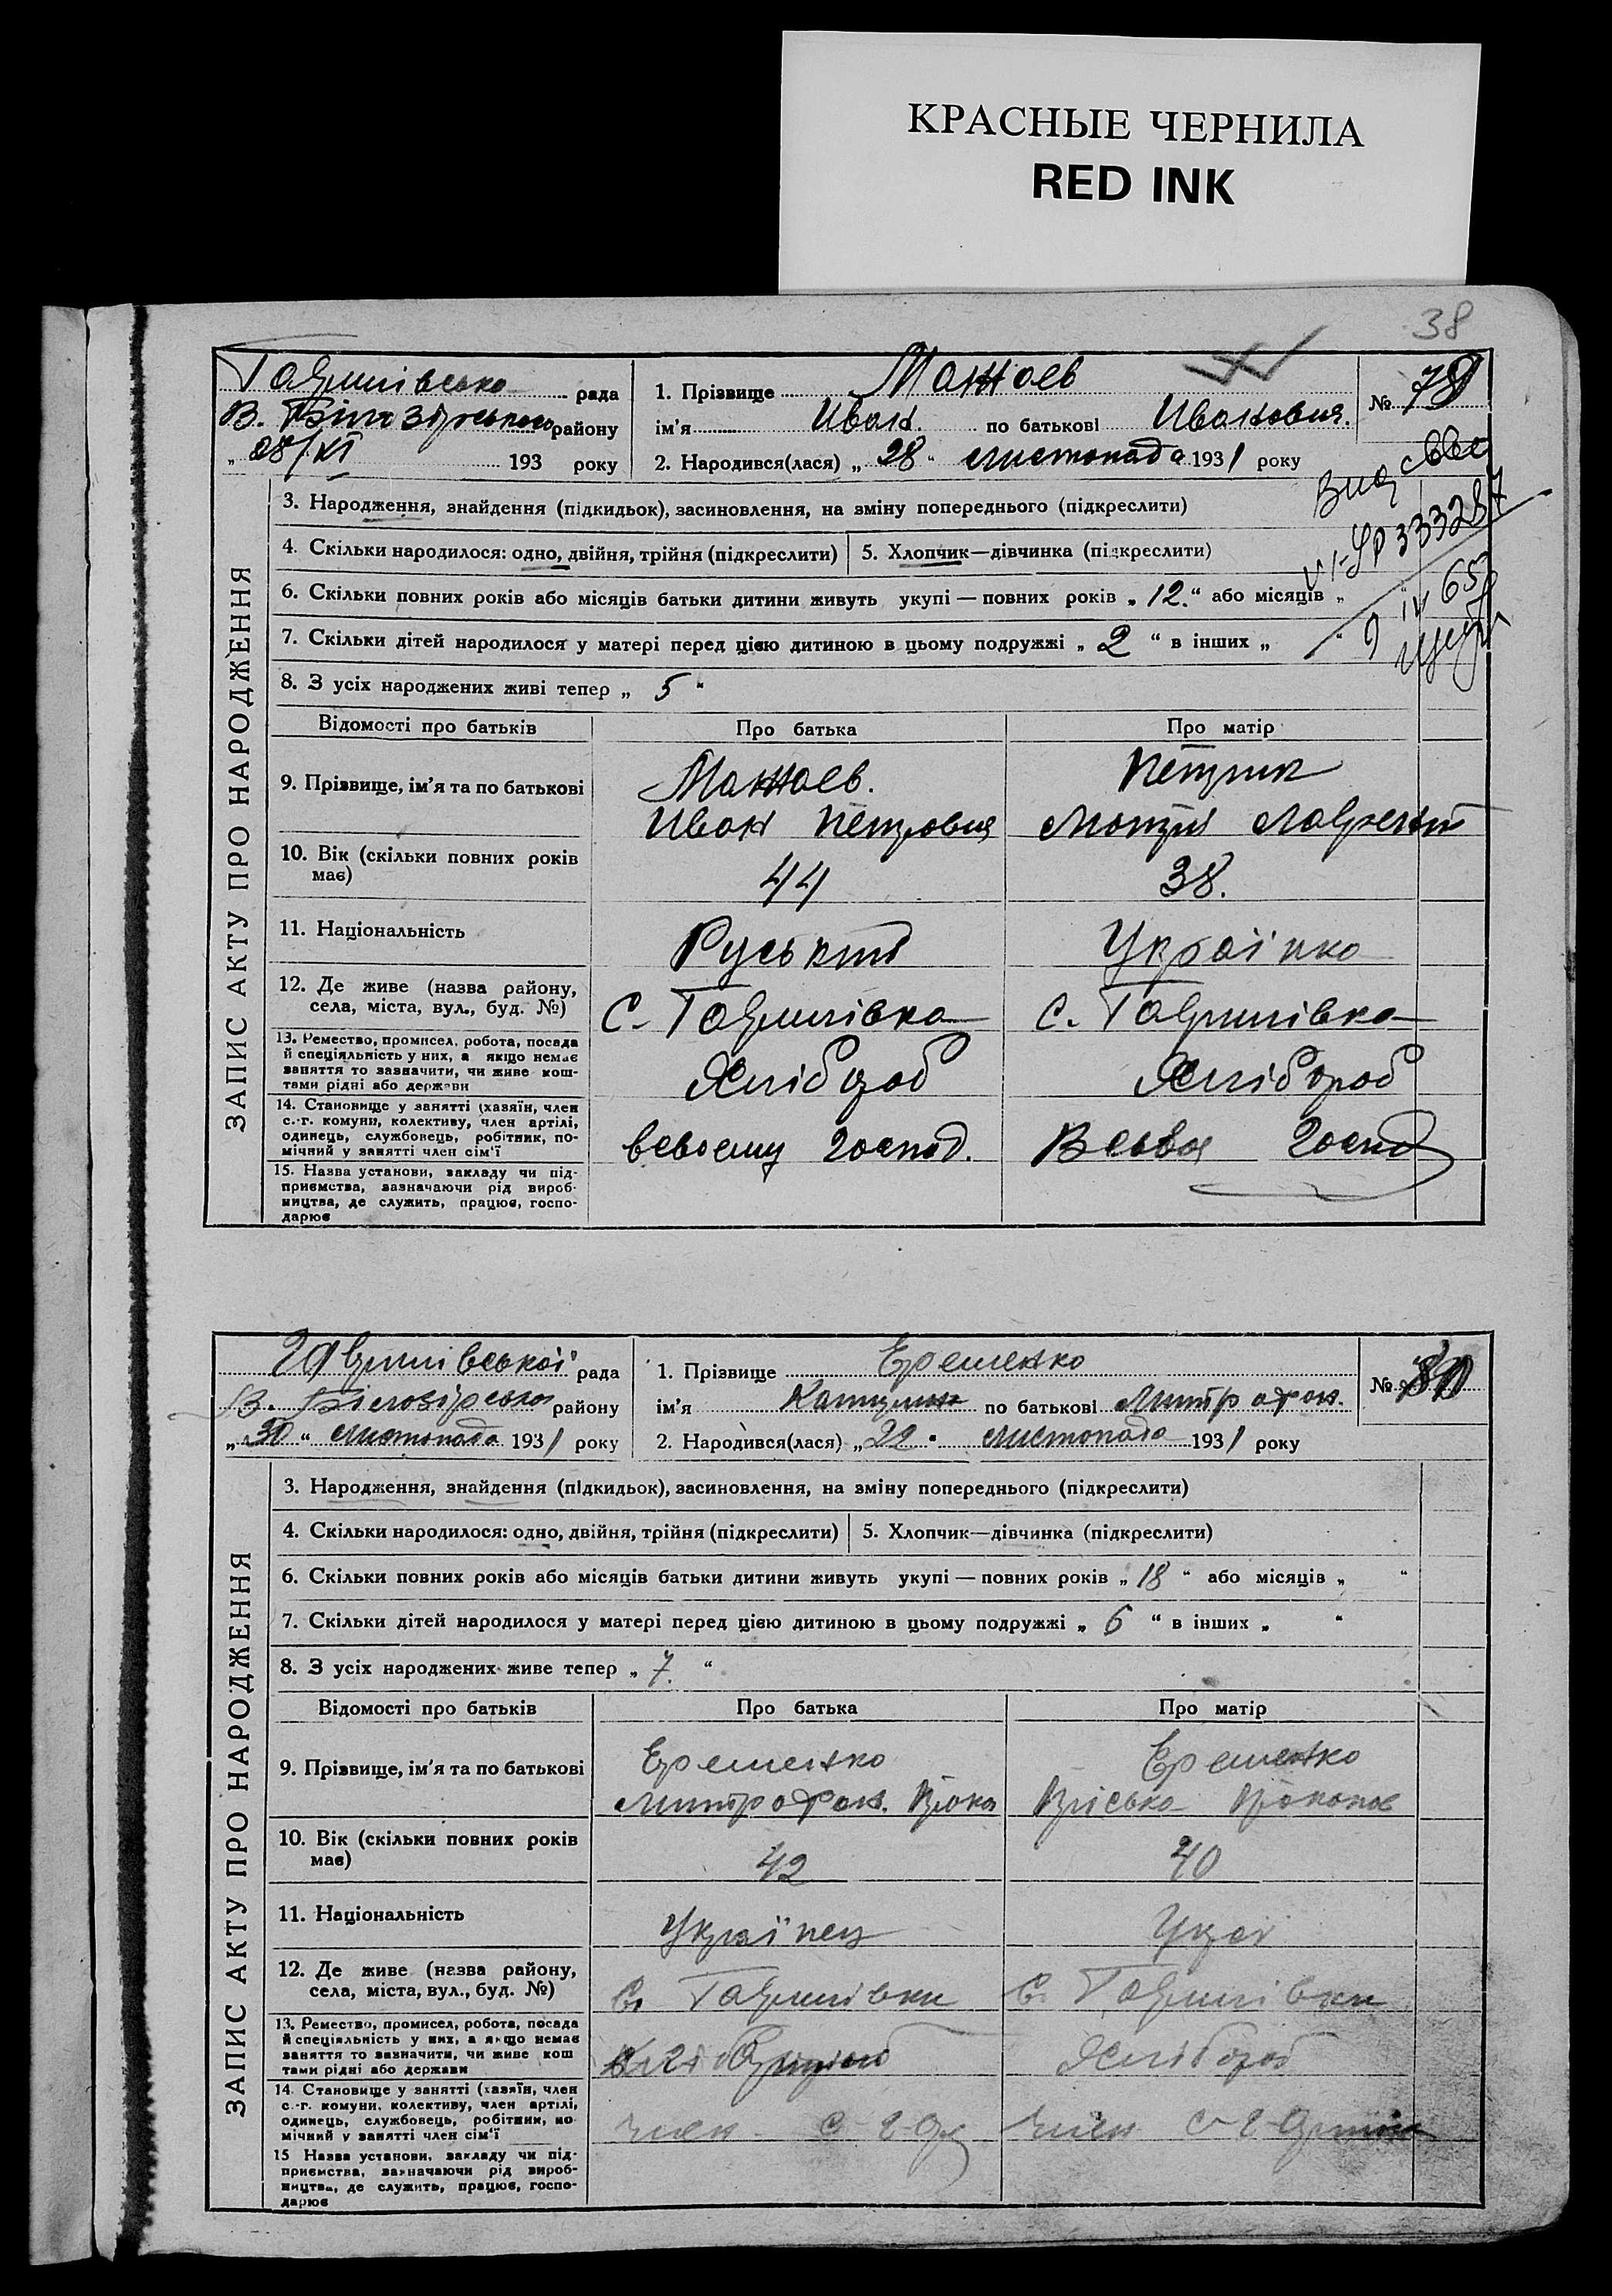 КРАСНЫЕ ЧЕРНИЛА
RED INK
38
Гаврилівсько рада
В. Білозірського району
28/XI 193 року
1. Прізвище Мажаев
ім'я Иван. по батькові Иванович.
2. Народився(лася) „28“ листопада 1931 року
№ 79
Вид свво
УР 333287
9 IV 65
ЗАПИС АКТУ ПРО НАРОДЖЕННЯ
3. Народження, знайдення (підкидьок), засиновлення, на зміну попереднього (підкреслити)
4. Скільки народилося: одно, двійня, трійня (підкреслити) 5. Хлопчик—дівчинка (підкреслити)
6. Скільки повних років або місяців батьки дитини живуть укупі — повних років „12.“ або місяців „
7. Скільки дітей народилося у матері перед цією дитиною в цьому подружжі „2“ в інших „ “
8. З усіх народжених живі тепер „5“
Відомості про батьків Про батька Про матір
9. Прізвище, ім'я та по батькові
Мажаев.
Иван Петрович
Петрик
Мотря Лаврентії
10. Вік (скільки повних років
має)
44 38.
11. Національність
Руський Українка
12. Де живе (назва району,
села, міста, вул., буд. №)
С. Гаврилівка с. Гаврилівка
13. Ремество, промисел, робота, посада
й спеціяльність у них, а якщо немає
заняття то зазначити, чи живе кош-
тами рідні або держави
Хлібороб Хлібороб
14. Становище у занятті (хазяїн, член
с.-г. комуни, колективу, член артілі,
одинець, службовець, робітник, по-
мічний у занятті член сім'ї
всвоему господ. Всвоя господ
15. Назва установи, закладу чи під-
приємства, зазначаючи рід вироб-
ництва, де служить, працює, госпо-
дарює
Гаврилівської рада
В. Білозірсько району
„30“ листопада 1931 року
1. Прізвище Еременко
ім'я Катерина по батькові Митрофан.
2. Народився(лася) „22“ листопада 1931 року
№ 80
ЗАПИС АКТУ ПРО НАРОДЖЕННЯ
3. Народження, знайдення (підкидьок), засиновлення, на зміну попереднього (підкреслити)
4. Скільки народилося: одно, двійня, трійня (підкреслити) 5. Хлопчик—дівчинка (підкреслити)
6. Скільки повних років або місяців батьки дитини живуть укупі — повних років „18“ або місяців „ “
7. Скільки дітей народилося у матері перед цією дитиною в цьому подружжі „6“ в інших „ “
8. З усіх народжених живе тепер „7.“
Відомості про батьків Про батька Про матір
9. Прізвище, ім'я та по батькові
Еременко
Митрофан. Прока
Еременко
Пріська Прокопов
10. Вік (скільки повних років
має)
42 40
11. Національність
Українец Украї
12. Де живе (назва району,
села, міста, вул., буд. №)
с. Гаврилівки с. Гаврилівки
13. Ремество, промисел, робота, посада
й спеціяльність у них, а якщо немає
заняття то зазначити, чи живе кош
тами рідні або держави
Хлібороб
14. Становище у занятті (хазяїн, член
с.-г. комуни, колективу, член артілі,
одинець, службовець, робітник, по-
мічний у занятті член сім'ї
член с-г ар член с-г артілі
15 Назва установи, закладу чи під-
приємства, зазначаючи рід вироб-
ництва, де служить, працює, госпо-
дарює